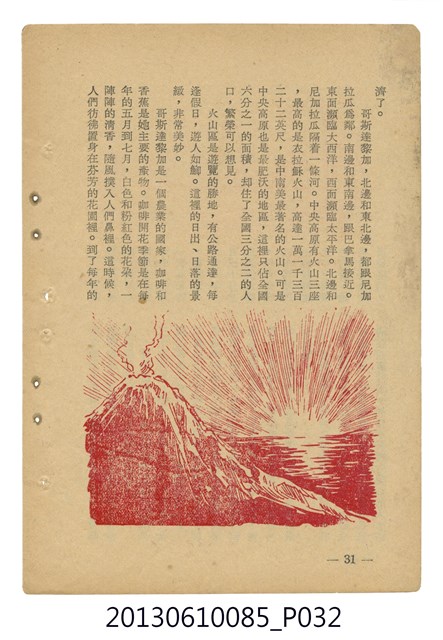 濟了。
哥斯達黎加，北邊和東北邊，都跟尼加
拉瓜爲鄰。南邊和東南邊，跟巴拿馬接近。
東面瀕臨大西洋，西面瀕臨太平洋。北邊和
尼加拉瓜隔着一條河。中央高原有火山三座
，最高的是衣拉穌火山，高達一萬一千三百
二十二英尺，是中南美最著名的火山。可是
中央高原也是最肥沃的地區，這裡只佔全國
六分之一的面積，却住了全國三分之二的人
口，繁榮可以想見。
火山區是遊覽的勝地，有公路通達，每
逢假日，遊人如鯽。這裡的日出、日落的景
緻，非常美妙。
哥斯達黎加是一個農業的國家，咖啡和
香蕉是她主要的產物。咖啡開花季節是在每
年的五月到七月，白色和粉紅色的花朵，一
陣陣的清香，隨風撲入人們鼻裡。這時候，
人們彷彿置身在芬芳的花園裡。到了每年的
— 31 —
20130610085_P032